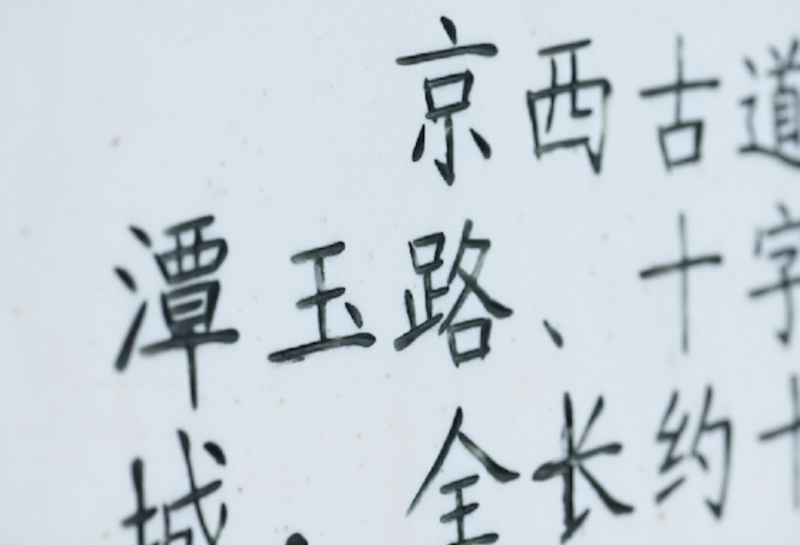 京西古道
潭玉路、十字
城。全长约十